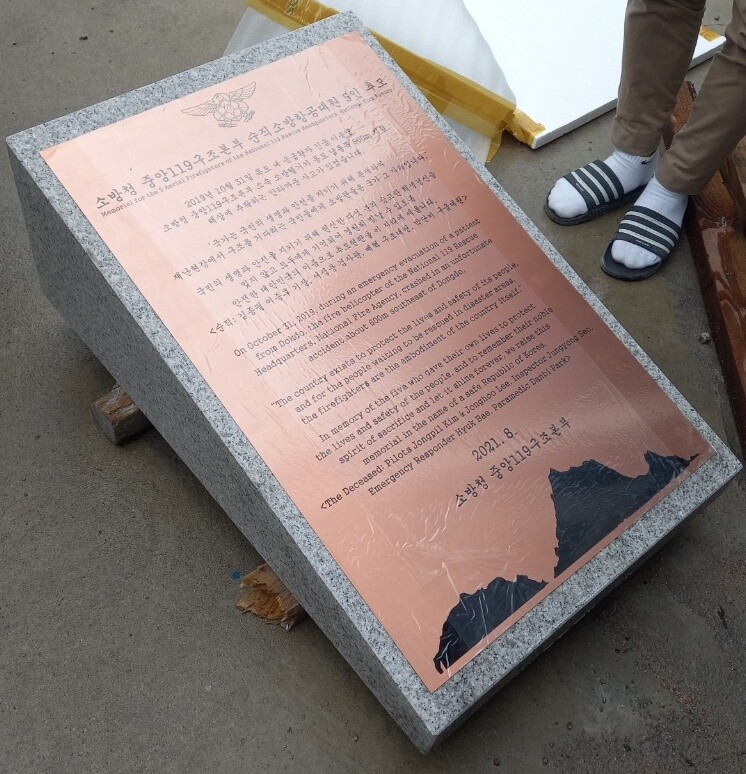 소방청 중앙119구조본부 순직소방항공대원 5인 추모
Memorial for the 5 Aerial Firefighters of the National 119 Rescue Headquarters, National Fire Agency
2019년 10월 31일 독도 내 응급환자 긴급 이송 중
소방청 중앙119구조본부 소속 소방헬기가 독도 동남쪽 600m 지점
해상에 추락하는 안타까운 사고가 있었습니다.
"국가는 국민의 생명과 안전을 지키기 위해 존재하며
재난현장에서 구조를 기다리는 국민들에게 소방관들은 국가 그 자체입니다."
국민의 생명과 안전을 지키기 위해 헌신한 다섯 분의 숭고한 희생정신을
잊지 않고 모두에게 기억되어 영원히 빛날 수 있도록
안전한 대한민국의 이름으로 추모판을 이 자리에 세웁니다.
<순직: 김종필 이종후 기장, 서정용 검사관, 배혁 구조대원, 박단비 구급대원>
On October 31, 2019, during an emergency evacuation of a patient
from Dokdo, the fire helicopter of the National 119 Rescue
Headquarters, National Fire Agency, crashed in an unfortunate
accident about 600m southeast of Dongdo.
"The country exists to protect the lives and safety of its people,
and for the people waiting to be rescued in disaster areas,
the firefighters are the embodiment of the country itself."
In memory of the five who gave their own lives to protect
the lives and safety of the people, and to remember their noble
spirit of sacrifice and let it shine forever, we raise this
memorial in the name of a safe Republic of Korea.
<The Deceased: Pilots Jongpil Kim & Jonghoo Lee, Inspector Jungyong Seo,
Emergency Responder Hyuk Bae, Paramedic Danbi Park>
2021. 8.
소방청 중앙119구조본부